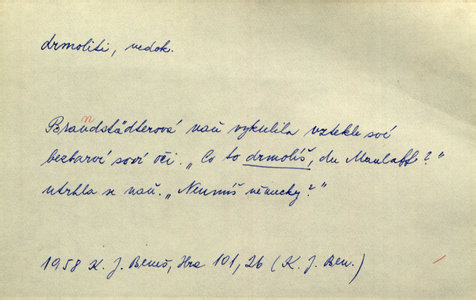 drmoliti, nedok.
Brandstädterová naň vykulila vztekle své
bezbarvé soví oči. „Co to drmolíš, du Maulaffe?“
utrhla se naň. „Neumíš německy?“
1958 K. J. Beneš, Hra 101, 26 (K. J. Ben.)